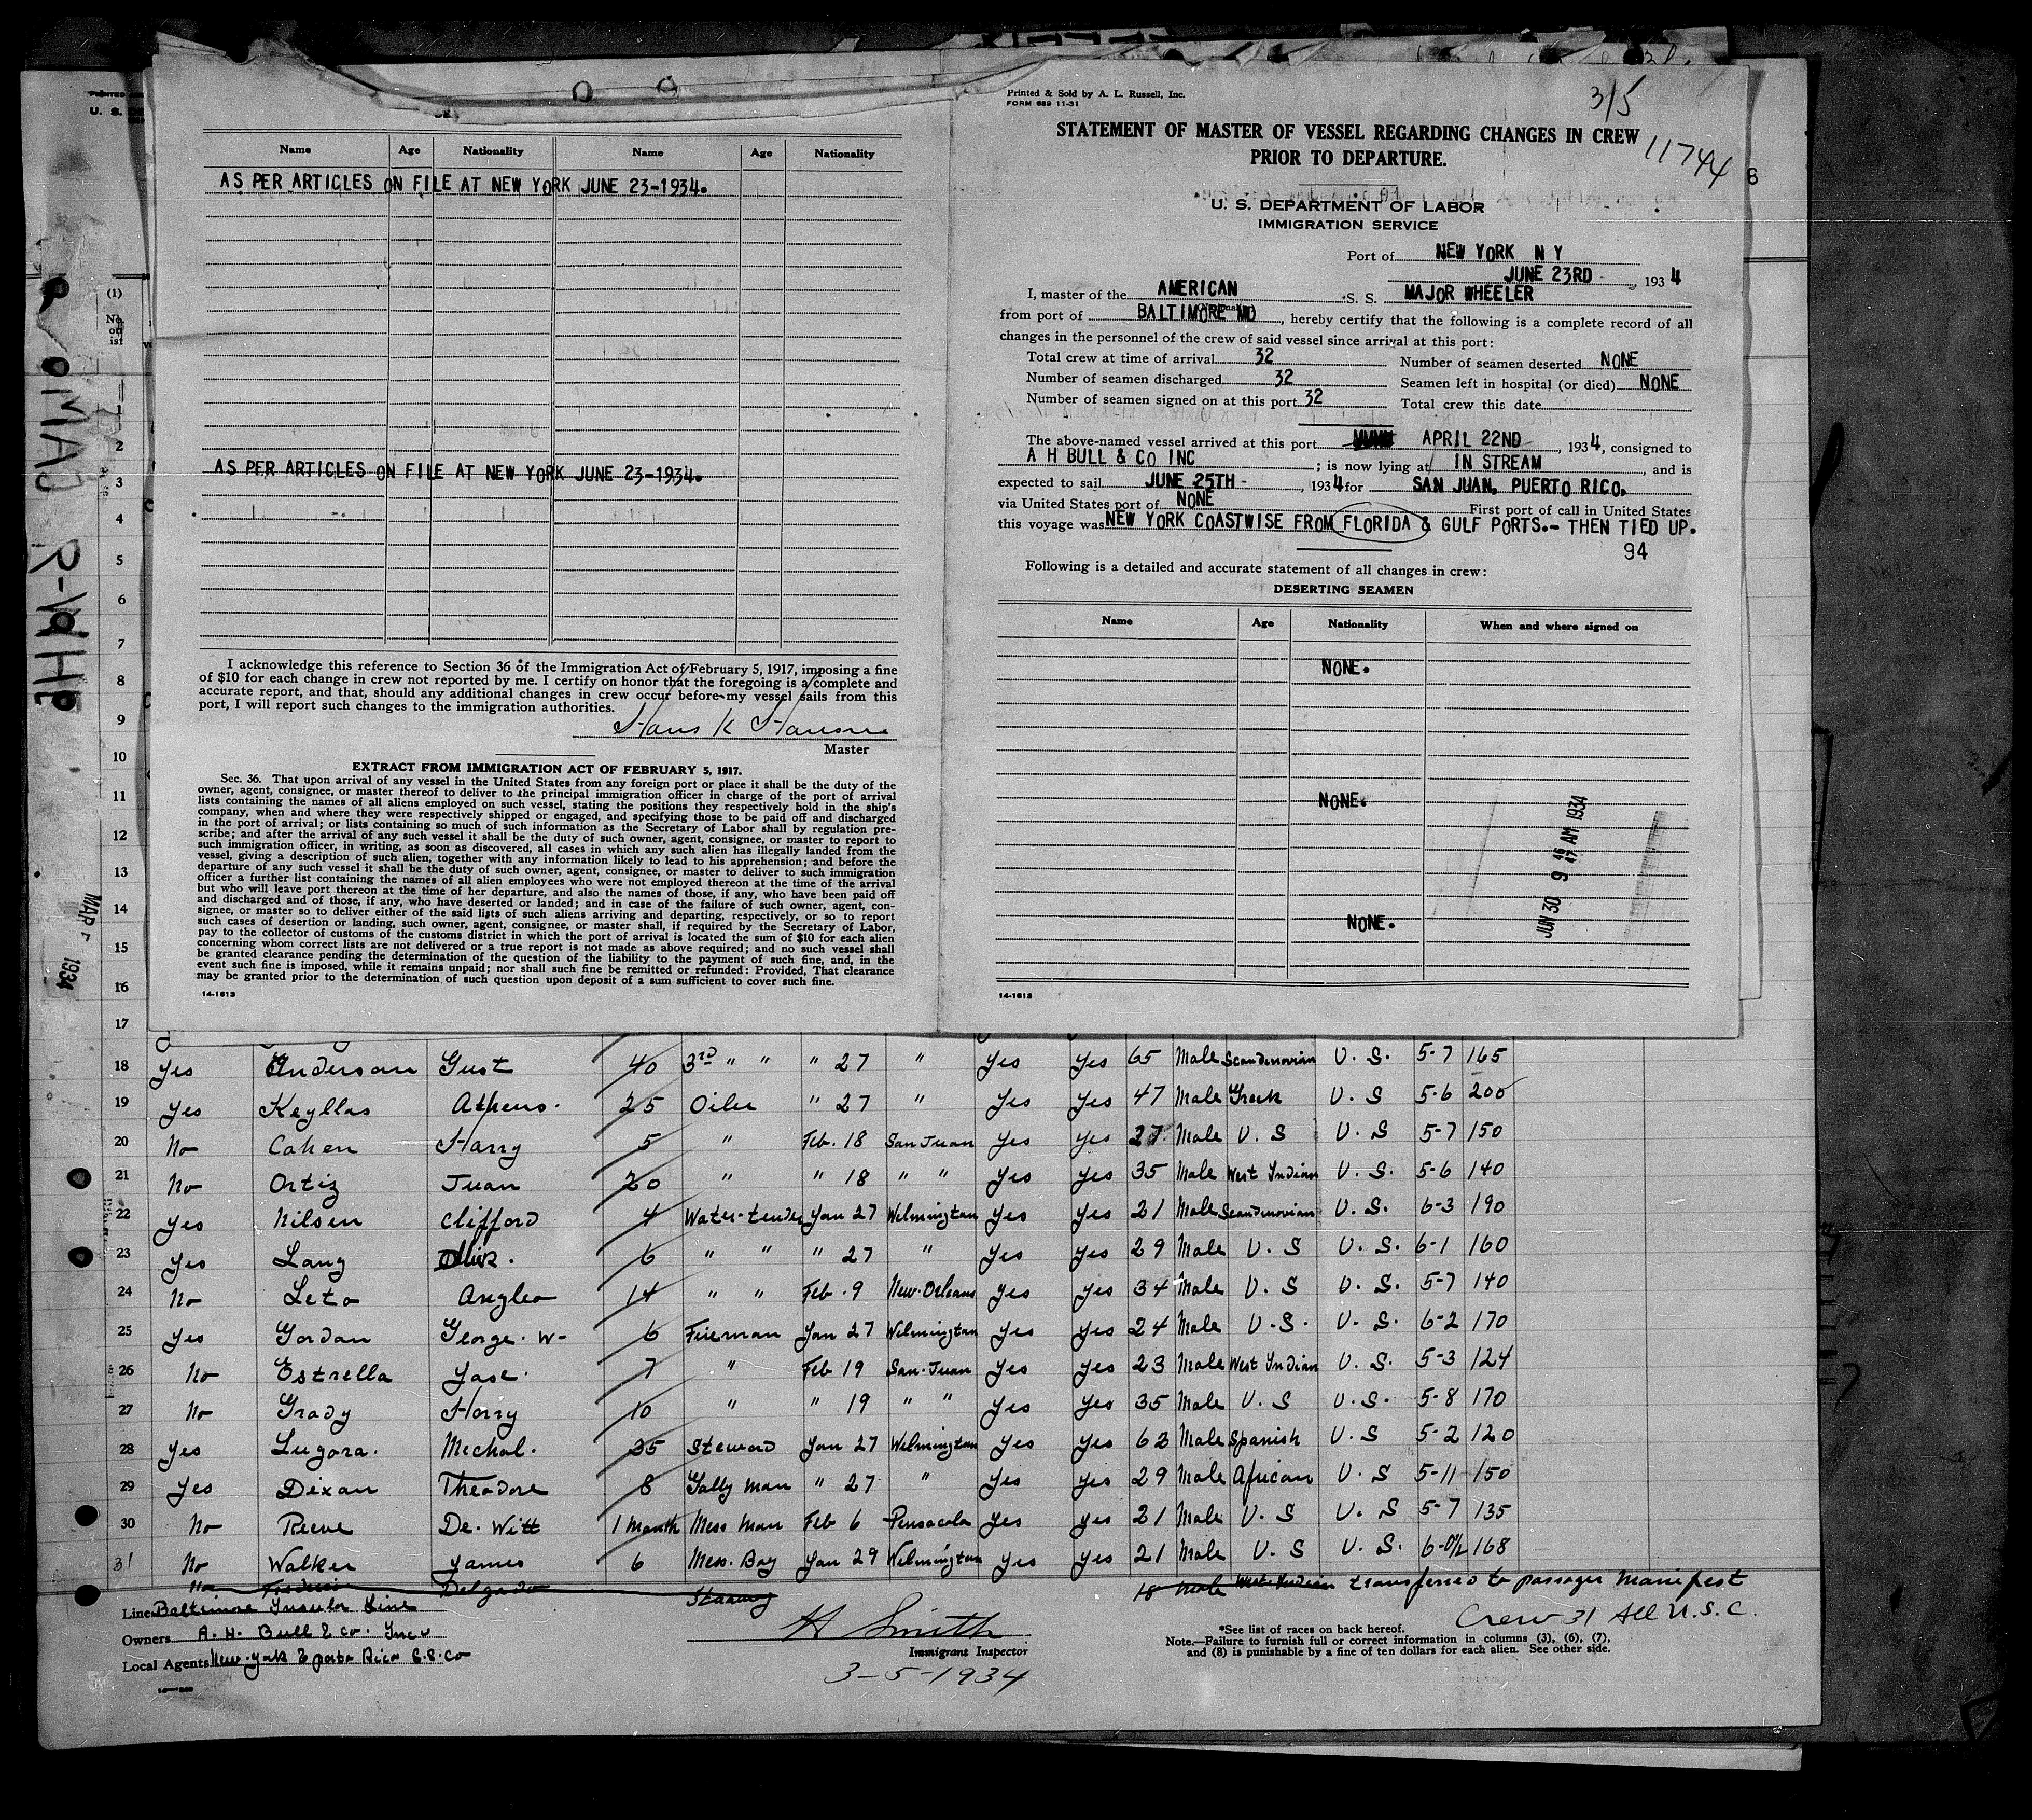 Name Age Nationality Name Age Nationality
AS PER ARTICLES ON FILE AT NEW YORK JUNE 23-1934.
AS PER ARTICLES ON FILE AT NEW YORK JUNE 23-1934.
I acknowledge this reference to Section 36 of the Immigration Act of February 5, 1917, imposing a fine
of $10 for each change in crew not reported by me. I certify on honor that the foregoing is a complete and
accurate report, and that, should any additional changes in crew occur before my vessel sails from this
port, I will report such changes to the immigration authorities.
Hans K Hansen
Master
EXTRACT FROM IMMIGRATION ACT OF FEBRUARY 5, 1917.
Sec. 36. That upon arrival of any vessel in the United States from any foreign port or place it shall be the duty of the
owner, agent, consignee, or master thereof to deliver to the principal immigration officer in charge of the port of arrival
lists containing the names of all aliens employed on such vessel, stating the positions they respectively hold in the ship's
company, when and where they were respectively shipped or engaged, and specifying those to be paid off and discharged
in the port of arrival; or lists containing so much of such information as the Secretary of Labor shall by regulation pre-
scribe; and after the arrival of any such vessel it shall be the duty of such owner, agent, consignee, or master to report to
such immigration officer, in writing, as soon as discovered, all cases in which any such alien has illegally landed from the
vessel, giving a description of such alien, together with any information likely to lead to his apprehension; and before the
departure of any such vessel it shall be the duty of such owner, agent, consignee, or master to deliver to such immigration
officer a further list containing the names of all alien employees who were not employed thereon at the time of the arrival
but who will leave port thereon at the time of her departure, and also the names of those, if any, who have been paid off
and discharged and of those, if any, who have deserted or landed; and in case of the failure of such owner, agent, con-
signee, or master so to deliver either of the said lists of such aliens arriving and departing, respectively, or so to report
such cases of desertion or landing, such owner, agent, consignee, or master shall, if required by the Secretary of Labor,
pay to the collector of customs of the customs district in which the port of arrival is located the sum of $10 for each alien
concerning whom correct lists are not delivered or a true report is not made as above required; and no such vessel shall
be granted clearance pending the determination of the question of the liability to the payment of such fine, and, in the
event such fine is imposed, while it remains unpaid; nor shall such fine be remitted or refunded: Provided, That clearance
may be granted prior to the determination of such question upon deposit of a sum sufficient to cover such fine.
14-1613
Printed & Sold by A. L. Russell, Inc.
FORM 689 11-31
3/5
11744
STATEMENT OF MASTER OF VESSEL REGARDING CHANGES IN CREW
PRIOR TO DEPARTURE.
U. S. DEPARTMENT OF LABOR
IMMIGRATION SERVICE
Port of NEW YORK N Y
JUNE 23RD , 1934
I, master of the AMERICAN S. S. MAJOR WHEELER
from port of BALTIMORE MD , hereby certify that the following is a complete record of all
changes in the personnel of the crew of said vessel since arrival at this port:
Total crew at time of arrival 32 Number of seamen deserted NONE
Number of seamen discharged 32 Seamen left in hospital (or died) NONE
Number of seamen signed on at this port 32 Total crew this date
The above-named vessel arrived at this port APRIL 22ND , 1934, consigned to
A H BULL & CO INC ; is now lying at IN STREAM , and is
expected to sail JUNE 25TH - , 1934 for SAN JUAN, PUERTO RICO,
via United States port of NONE First port of call in United States
this voyage was NEW YORK COASTWISE FROM FLORIDA & GULF PORTS.- THEN TIED UP.
94
Following is a detailed and accurate statement of all changes in crew:
DESERTING SEAMEN
Name Age Nationality When and where signed on
NONE.
NONE.
NONE.
JUN 30 9 AM 1934
14-1613
U. S.
(1)
No.
on
list
2
3
4
5
6
7
8
9
10
11
12
13
14
15
16
17
MAR 1934
18 Yes Anderson Gust 40 3rd " " " 27 " Yes Yes 65 Male Scandinovian U. S. 5-7 165
19 Yes Keyllas Athens. 25 Oiler " 27 " Yes Yes 47 Male Greek U. S 5-6 200
20 No Cohen Harry 5 " Feb. 18 San Juan Yes Yes 27 Male U. S U. S 5-7 150
21 No Ortiz Juan 20 " " 18 " " Yes Yes 35 Male West Indian U. S. 5-6 140
22 Yes Nilsen Clifford 4 Water-tender Jan 27 Wilmington Yes Yes 21 Male Scandinovian U. S. 6-3 190
23 Yes Lang 6 " " " 27 " Yes Yes 29 Male U. S U. S. 6-1 160
24 No Leto Angleo 14 " " Feb. 9 New-Orleans Yes Yes 34 Male U. S U. S. 5-7 140
25 Yes Gordan George. W- 6 Fireman Jan 27 Wilmington Yes Yes 24 Male U. S. U. S. 6-2 170
26 No Estrella Jose. 7 " Feb 19 San-Juan Yes Yes 23 Male West Indian U. S. 5-3 124
27 No Grady Harry 10 " " 19 " " Yes Yes 35 Male U. S U. S. 5-8 170
28 Yes Lugora. Michal. 35 Steward Jan 27 Wilmington Yes Yes 62 Male Spanish U. S 5-2 120
29 Yes Dixan Theadore 8 Gally Man " 27 " Yes Yes 29 Male African U. S 5-11 150
30 No Reeve De. Witt 1 Month Mess Man Feb 6 Pensacola Yes Yes 21 Male U. S U. S 5-7 135
31 No Walker James 6 Mess. Boy Jan 29 Wilmington Yes Yes 21 Male U. S U. S. 6-0½ 168
No Delgado 18 Male West Indian transferred to passager Manifest
Line Baltimore Insular Line
Owners A. H. Bull & Co. Inc
Local Agents New-York & porto Rico S.S. Co
H Smith
Immigrant Inspector
3-5-1934
Crew 31 All U.S.C.
*See list of races on back hereof.
Note.—Failure to furnish full or correct information in columns (3), (6), (7),
and (8) is punishable by a fine of ten dollars for each alien. See other side.